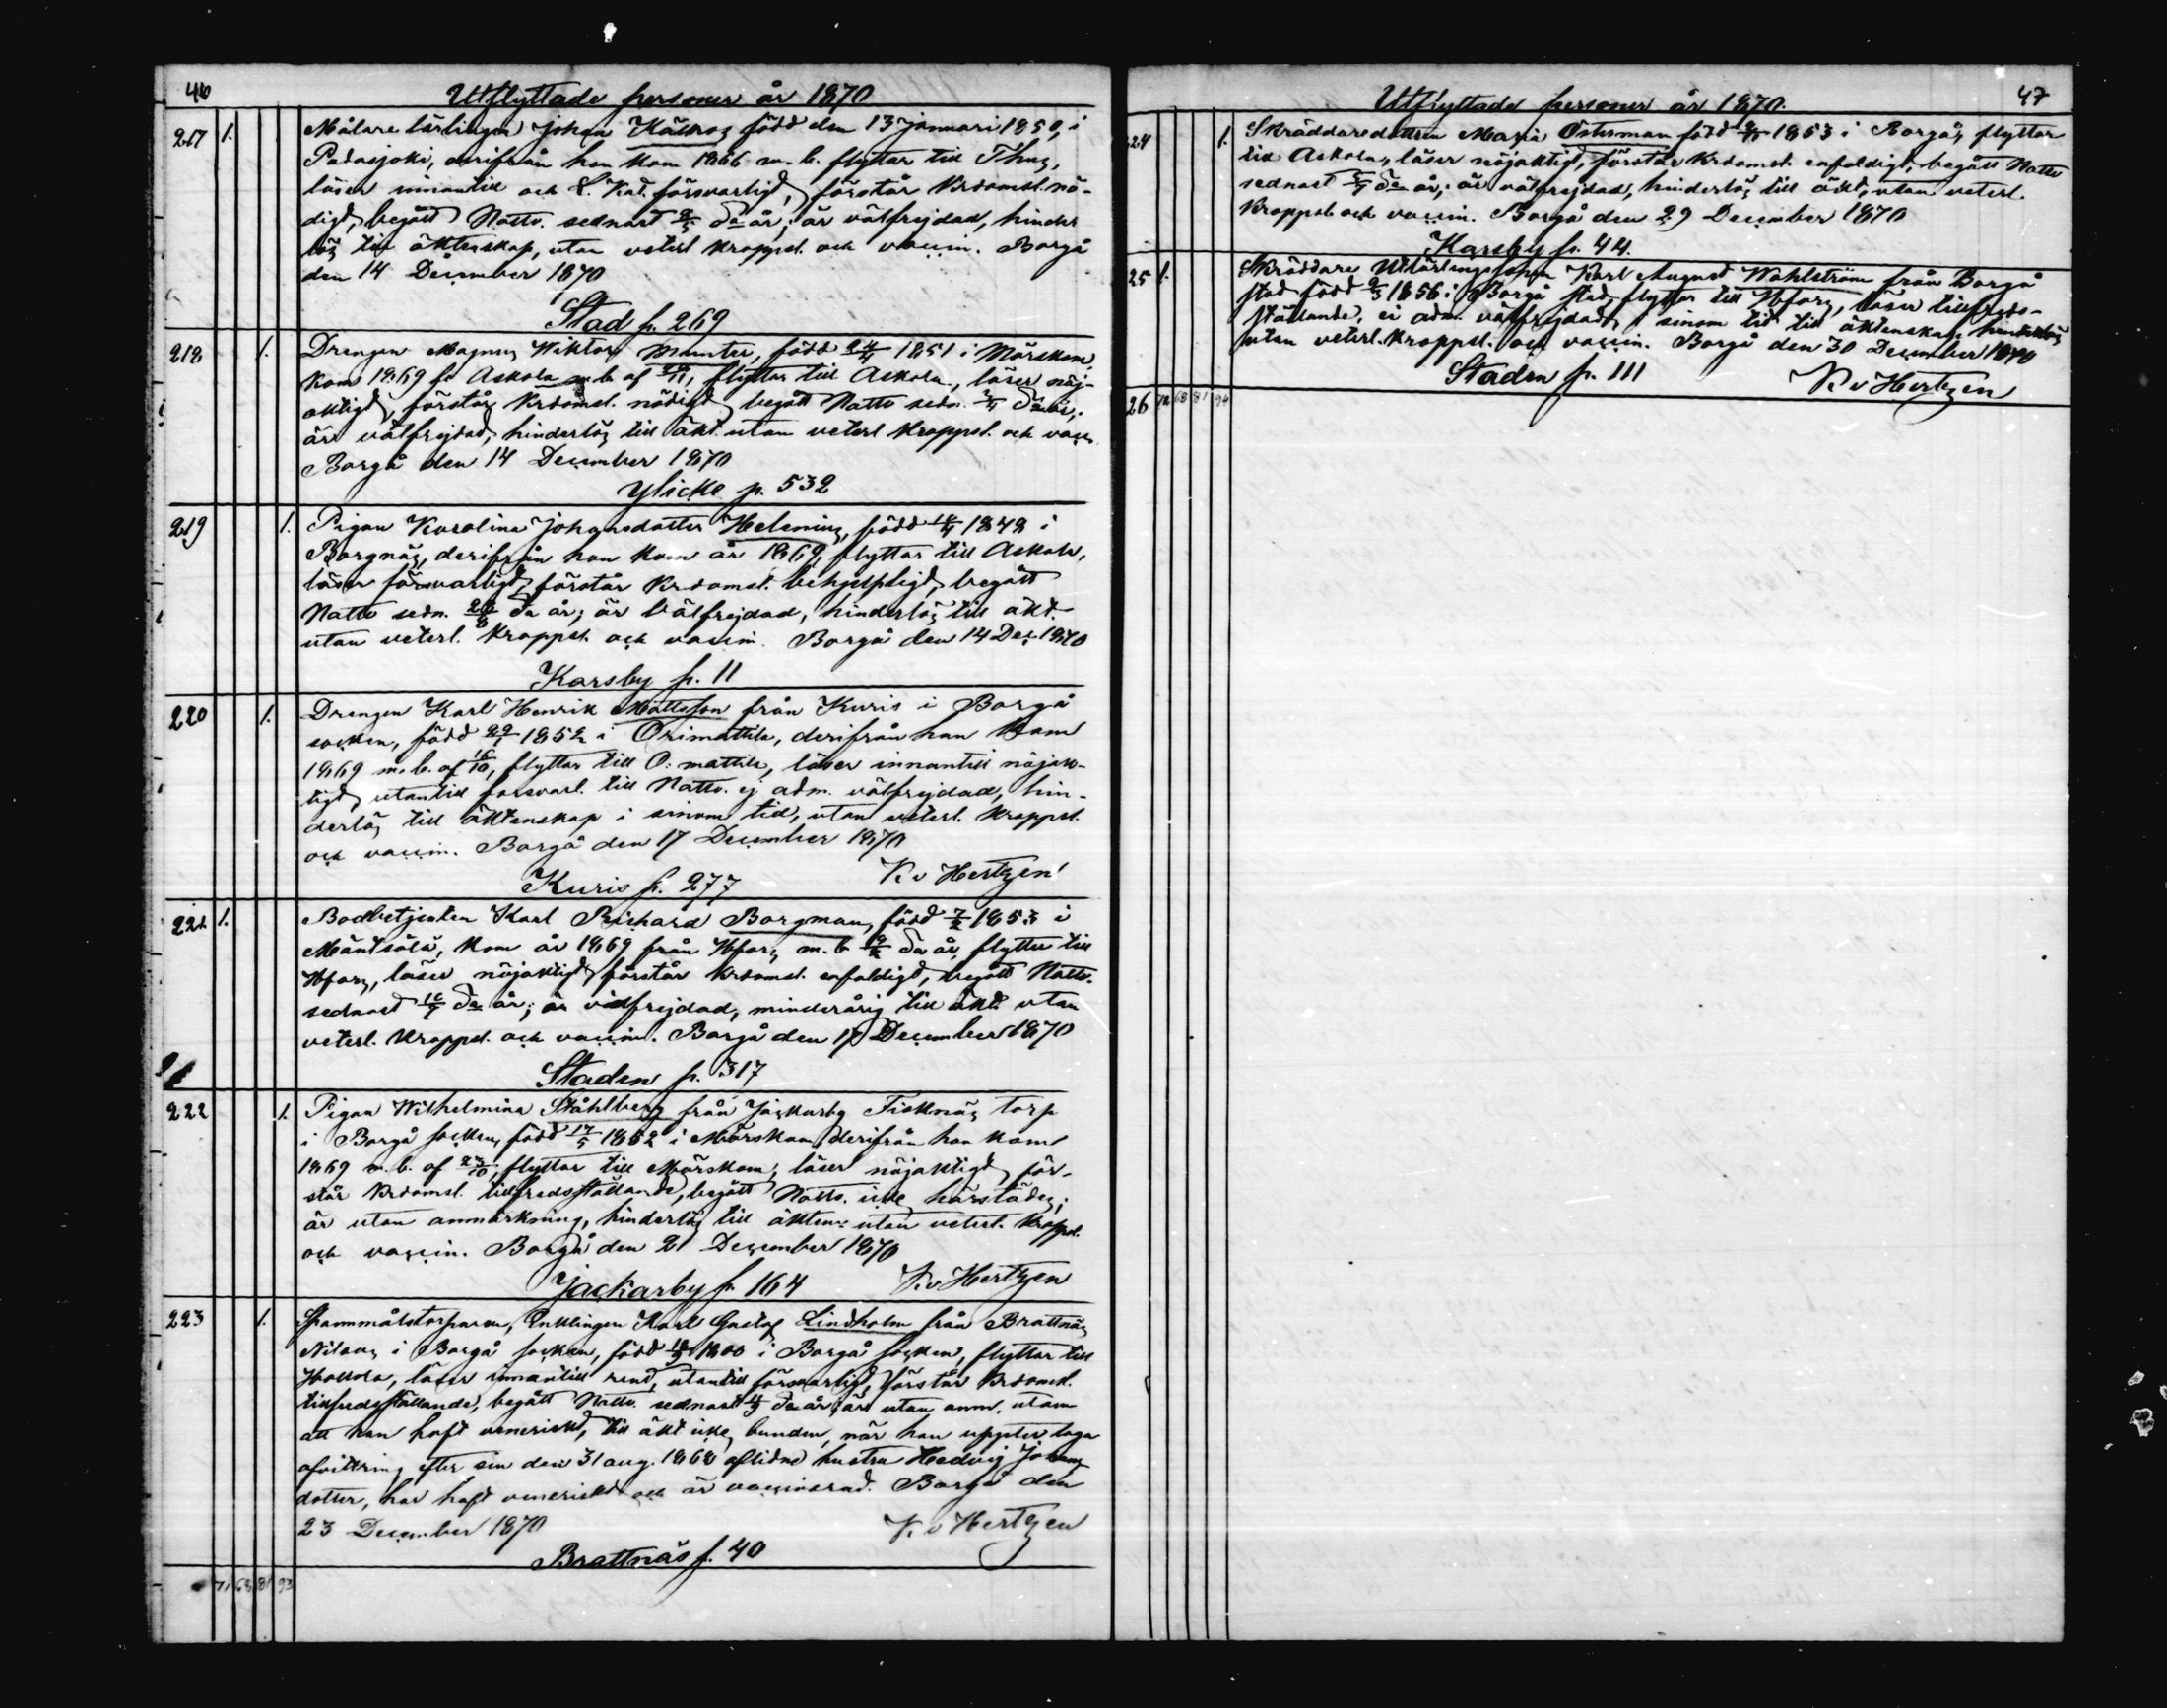 46
Utflyttade personer år 1870
217 1. Målare lärlingen Johan född den 13 Januari 1850, i
Padasjoki, derifrån han kom 1866 m. b. flyttar till Thus,
läser innantill och L. Kat. försvarligt, förstår Krdomsl. nö-
digt, begått Nattv. sednast da år; är välfrejdad, hinders
lös till äktenskap, utan veterl kroppsl. och vaccin. Borgå
den 14 December 1870
Stad p. 269
218 1. Drengen Magnus Wiktor Munter, född 24/4 1851 i Mörskom
kom 1869 fr Askola m b af flyttar till Askola, läser nöj-
aktigt, förstår Krdomsl. nödigt, begått Nattv sedn. da år;
är välfrejdad, hinderlös till äkt. utan veterl kroppsl. och vacc
Borgå den 14 December 1870
Ylicke p. 532
219 1. Pigan Karolina Johansdotter Helenius, född 1848 i
Borgnäs, derifrån hon kom år 1869, flyttar till Askola,
läser försvarligt, förstår Krdomsl. behjelpligt, begått
Nattv sedn. da år; är välfrejdad, hinderlös till äkt.
utan veterl. kroppsl. och vaccin. Borgå den 14 Dec 1870
Karsby p. 11
220 1. Drengen Karl Henrik Mattsson från Kuris i Borgå
socken, född 22/1 1852 i Orimattila, derifrån han kom
1869 m. b. af 16/10, flyttar till O:mattila, läser innantill nöjak-
tigt, utantill försvarl. till Nattv. ej adm. välfrejdad, hin-
derlös till äktenskap i sinom tid, utan veterl. kroppsl.
och vaccin. Borgå den 17 December 1870
Kuris p. 277 K. v Hertzen
221 1. Bodbetjenten Karl Richard Borgman, född 7/2 1853 i
Mäntsälä, kom år 1869 från Hfors, m. b da år, flyttar till
Hfors, läser nöjaktigt, förstår krdomsl. enfaldigt, begått Nattv.
sednast da år; är välfrejdad, minderårig till äkt. utan
veterl. kroppsl. och vaccin. Borgå den 17 December 1870
Staden p. 317
222 1. Pigan Wilhelmina Ståhlberg från Jackarby Fisknäs torp
i Borgå socken, född 17/5 1852 i Mörskom, derifrån hon kom
1869 m. b. af 23/10, flyttar till Mörskom, läser nöjaktigt, för-
står Krdomsl. tillfredsställande, begått Nattv. icke härstädes;
är utan anmärkning, hinderlös till äkten: utan veterl. kroppsl.
och vaccin. Borgå den 21 December 1870
Jackarby p. 164 K. v Hertzen
223 1. Spannmålstorparen, Enklingen Karl Gustaf Lindholm från Brattnäs
Nilsas i Borgå socken, född 1800 i Borgå socken, flyttar till
Hollola, läser innantill rent, utantill försvarligt, förstår Krdomsl.
tillfredsställande, begått Nattv. sednast da år, är utan anm. utom
att han haft veneriskt, till äkt icke bunden, när han uppter laga
afvittring efter sin den 31 aug. 1868 aflidne hustru Hedvig Johans
dotter, har haft veneriskt och är vaccinerad. Borgå den
23 December 1870 K. v Hertzen
Brattnäs p. 40
71 63 81 93
47
Utflyttade personer år 1870.
224 1. Skräddaredottren Maria Österman född 1853 i Borgå, flyttar
till Askola, läser nöjaktigt, förstår Krdomsl. enfaldigt, begått Nattv
sednast da år; är välfrejdad, hinderlös till äkt, utan veterl.
kroppsl och vaccin. Borgå den 29 December 1870
Karsby p. 44.
25 1. Skräddare Karl August Wahlström från Borgå
stad född 2/3 1856 i Borgå stad, flyttar till Hfors, läser tillfreds-
ställande, ej adm. välfrejdad, i sinom tid till äktenskap hinderlös
utan veterl. kroppsl. och vaccin. Borgå den 30 December 1870
Staden p. 111 K v Hertzen
26 72 63 81 94